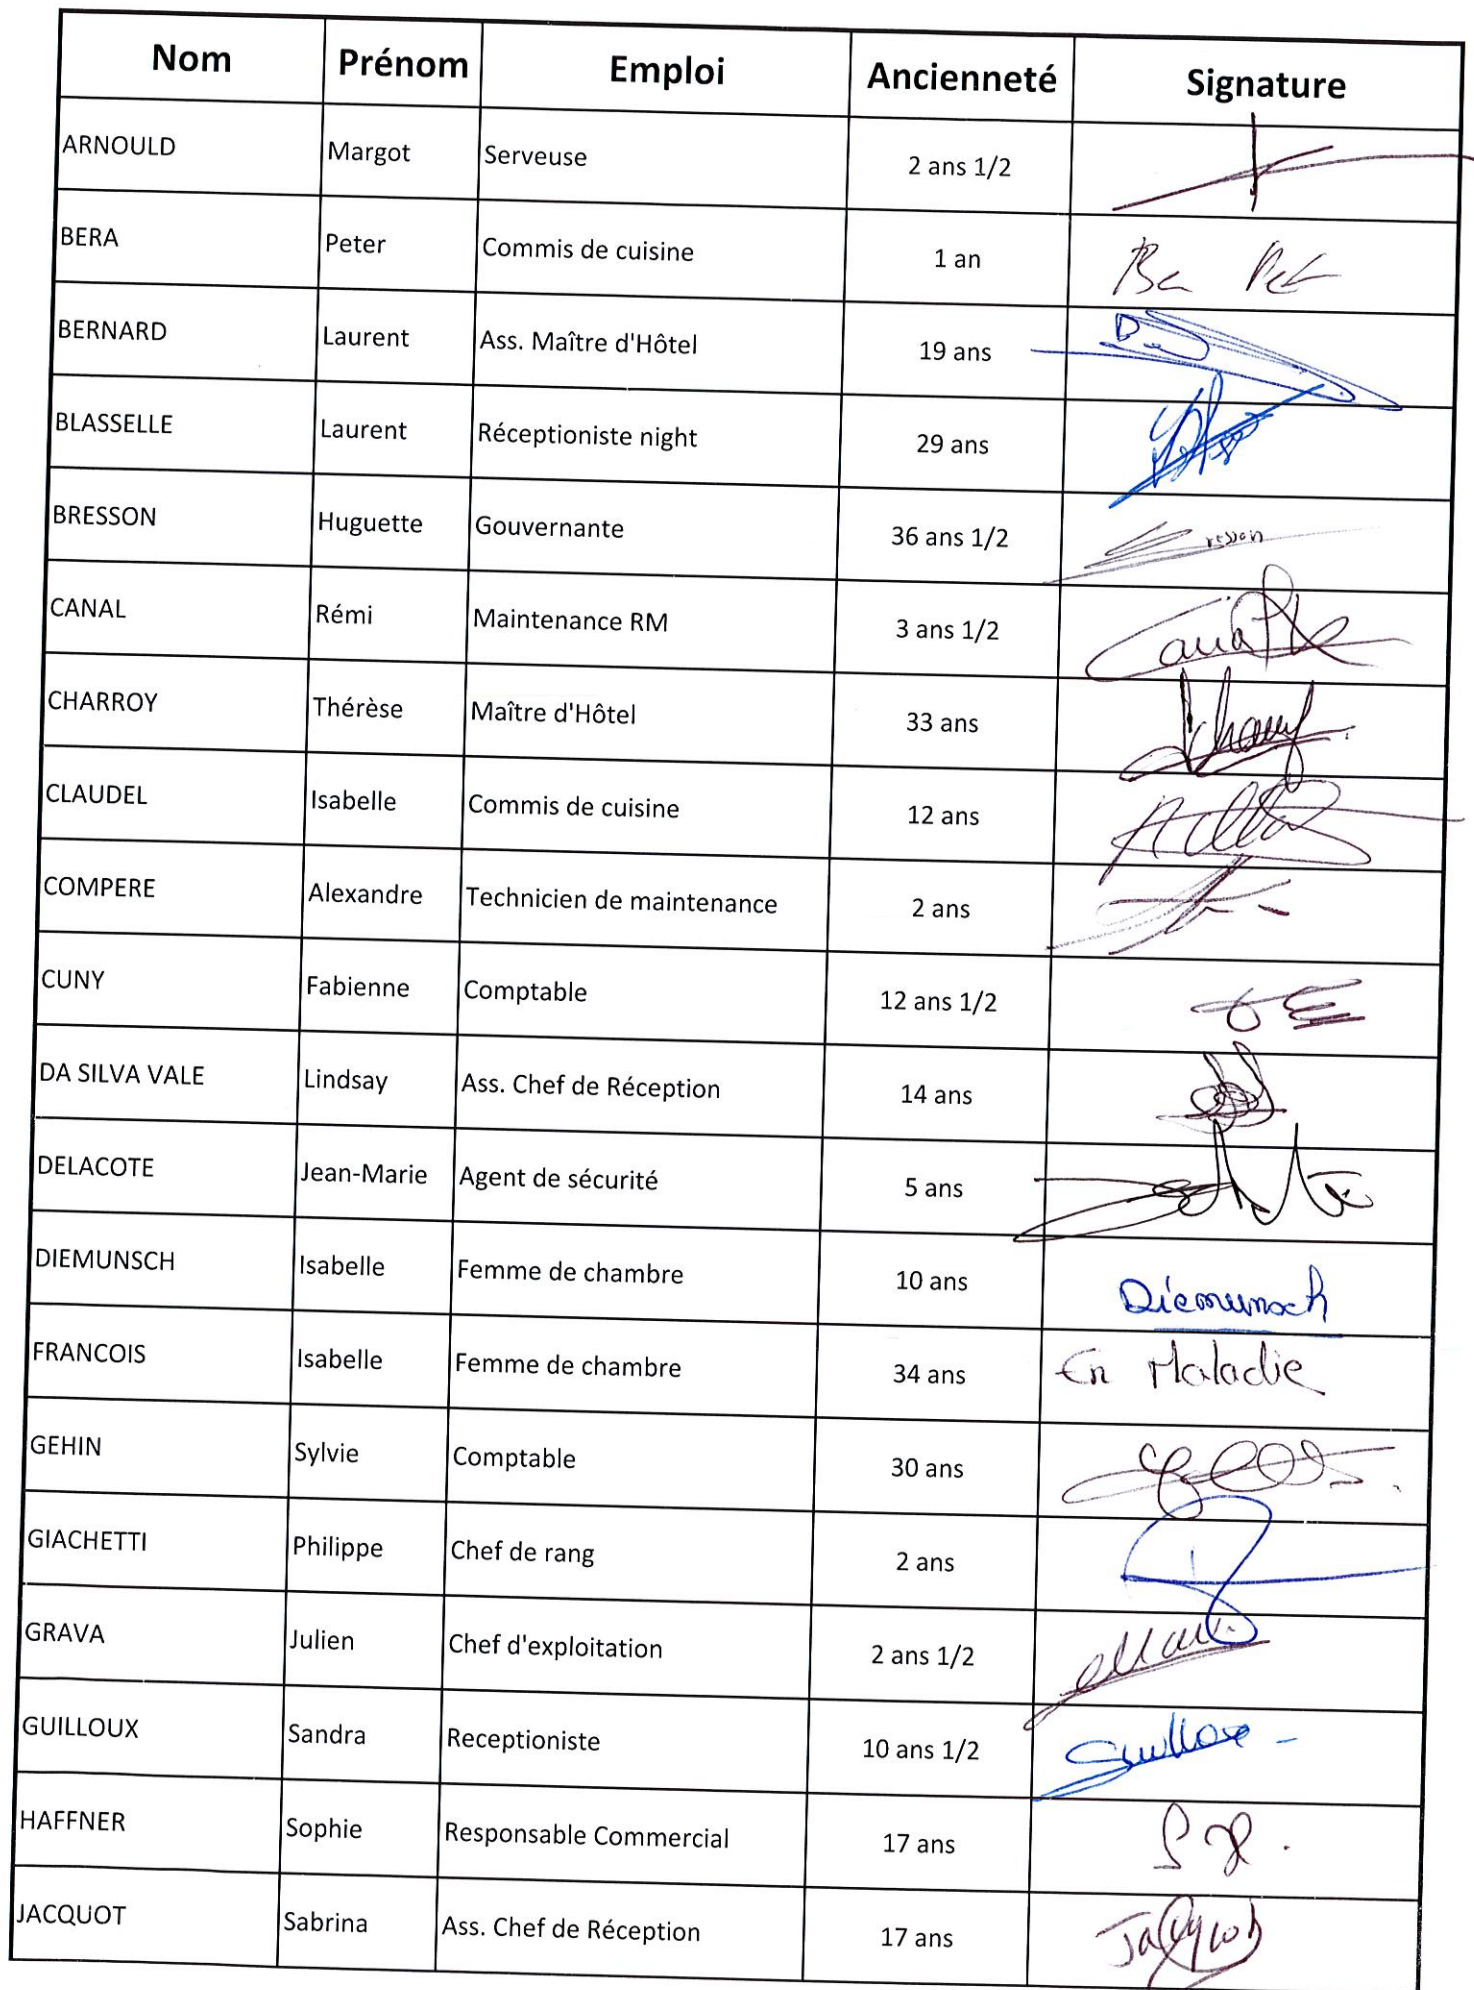 Nom Prénom Emploi Ancienneté Signature
ARNOULD Margot Serveuse 2 ans 1/2
BERA Peter Commis de cuisine 1 an
BERNARD Laurent Ass. Maître d'Hôtel 19 ans
BLASSELLE Laurent Réceptioniste night 29 ans
BRESSON Huguette Gouvernante 36 ans 1/2
CANAL Rémi Maintenance RM 3 ans 1/2
CHARROY Thérèse Maître d'Hôtel 33 ans
CLAUDEL Isabelle Commis de cuisine 12 ans
COMPERE Alexandre Technicien de maintenance 2 ans
CUNY Fabienne Comptable 12 ans 1/2
DA SILVA VALE Lindsay Ass. Chef de Réception 14 ans
DELACOTE Jean-Marie Agent de sécurité 5 ans
DIEMUNSCH Isabelle Femme de chambre 10 ans Diemunsch
FRANCOIS Isabelle Femme de chambre 34 ans En Maladie
GEHIN Sylvie Comptable 30 ans
GIACHETTI Philippe Chef de rang 2 ans
GRAVA Julien Chef d'exploitation 2 ans 1/2
GUILLOUX Sandra Receptioniste 10 ans 1/2 Guilloux
HAFFNER Sophie Responsable Commercial 17 ans
JACQUOT Sabrina Ass. Chef de Réception 17 ans Jacquot